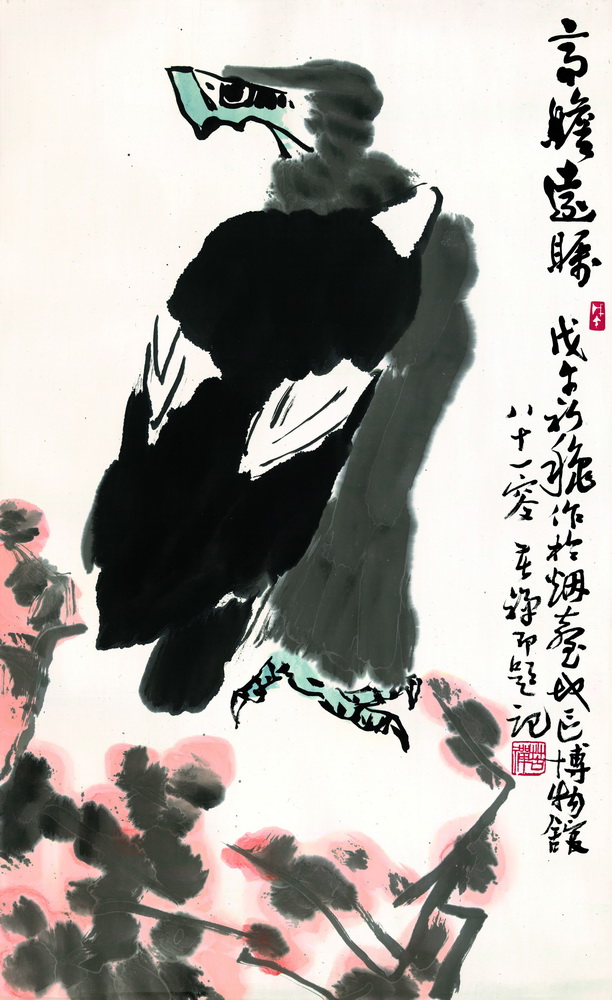 高瞻遠矚
戊午初穐作於烟臺地区博物館
八十一叟 苦禪題記